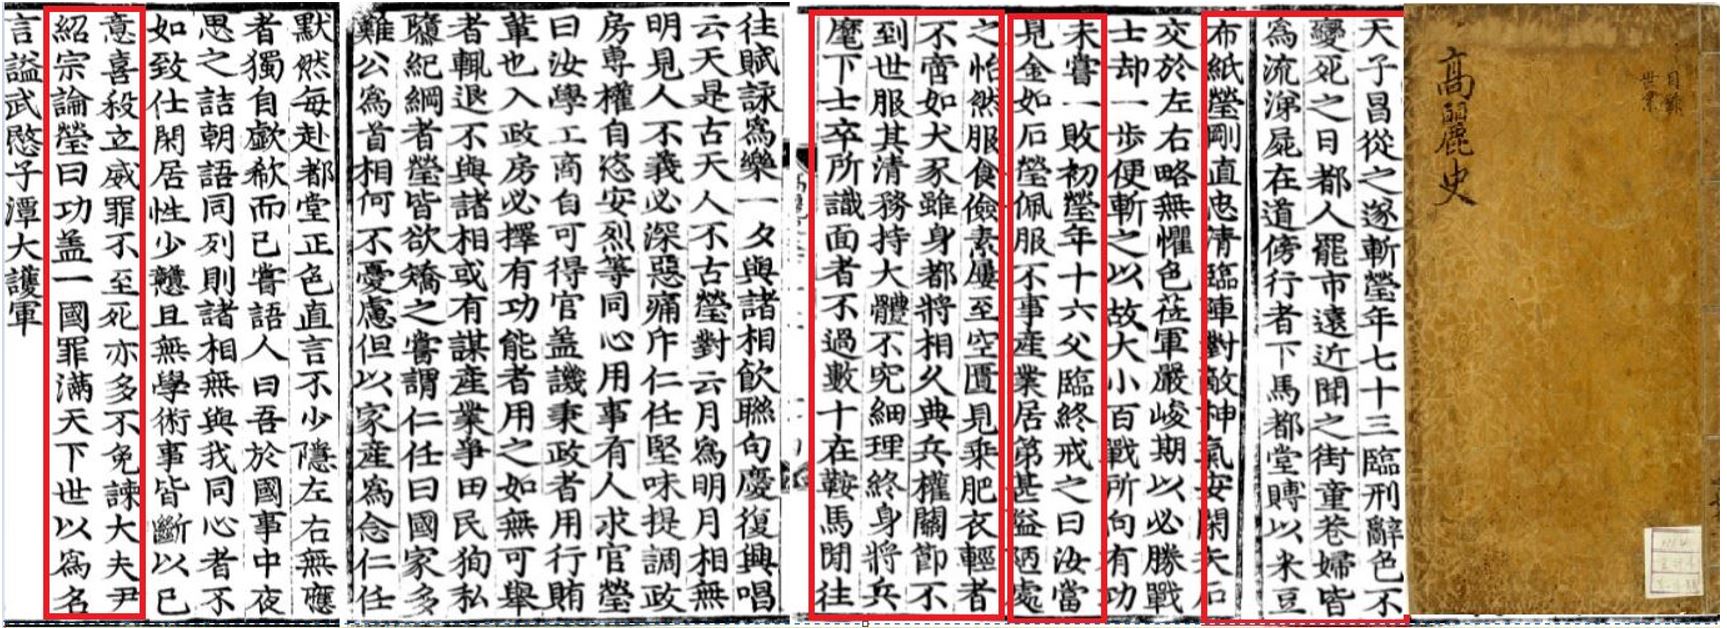 目錄
世
高麗史
天子昌從之遂斬瑩年七十三臨刑辭色不
變死之日都人罷市遠近聞之街童巷婦皆
爲流涕屍在道傍行者下馬都堂賻以米豆
布紙瑩剛直忠清臨陣對敵神氣安閑矢石
交於左右略無懼色莅軍嚴峻期以必勝戰
士却一步便斬之以故大小百戰所向有功
未嘗一敗初瑩年十六父臨終戒之曰汝當
見金如石瑩佩服不事産業居第甚隘陋處
之怡然服食儉素屢至空匱見乘肥衣輕者
不啻如犬豕雖身都將相久典兵權關節不
到世服其清務持大體不究細理終身將兵
麾下士卒所識面者不過數十在鞍馬間往
往賦詠爲樂一夕與諸相飮聯句慶復興唱
云天是古天人不古瑩對云月爲明月相無
明見人不義必深惡痛斥仁任堅味提調政
房専權自恣安烈等同心用事有人求官瑩
曰汝學工商自可得官盖譏秉政者用行賄
輩也入政房必擇有功能者用之如無可舉
者輒退不與諸相或有謀産業爭田民狥私
隳紀綱者瑩皆欲矯之嘗謂仁任曰國家多
難公爲首相何不憂慮但以家産爲念仁任
默然每赴都堂正色直言不少隱左右無應
者獨自歔欷而已嘗語人曰吾於國事中夜
思之詰朝語同列則諸相無與我同心者不
如致仕閑居性少戇且無學術事皆斷以己
意喜殺立威罪不至死亦多不免諫大夫尹
紹宗論瑩曰功盖一國罪滿天下世以爲名
言謚武愍子潭大護軍